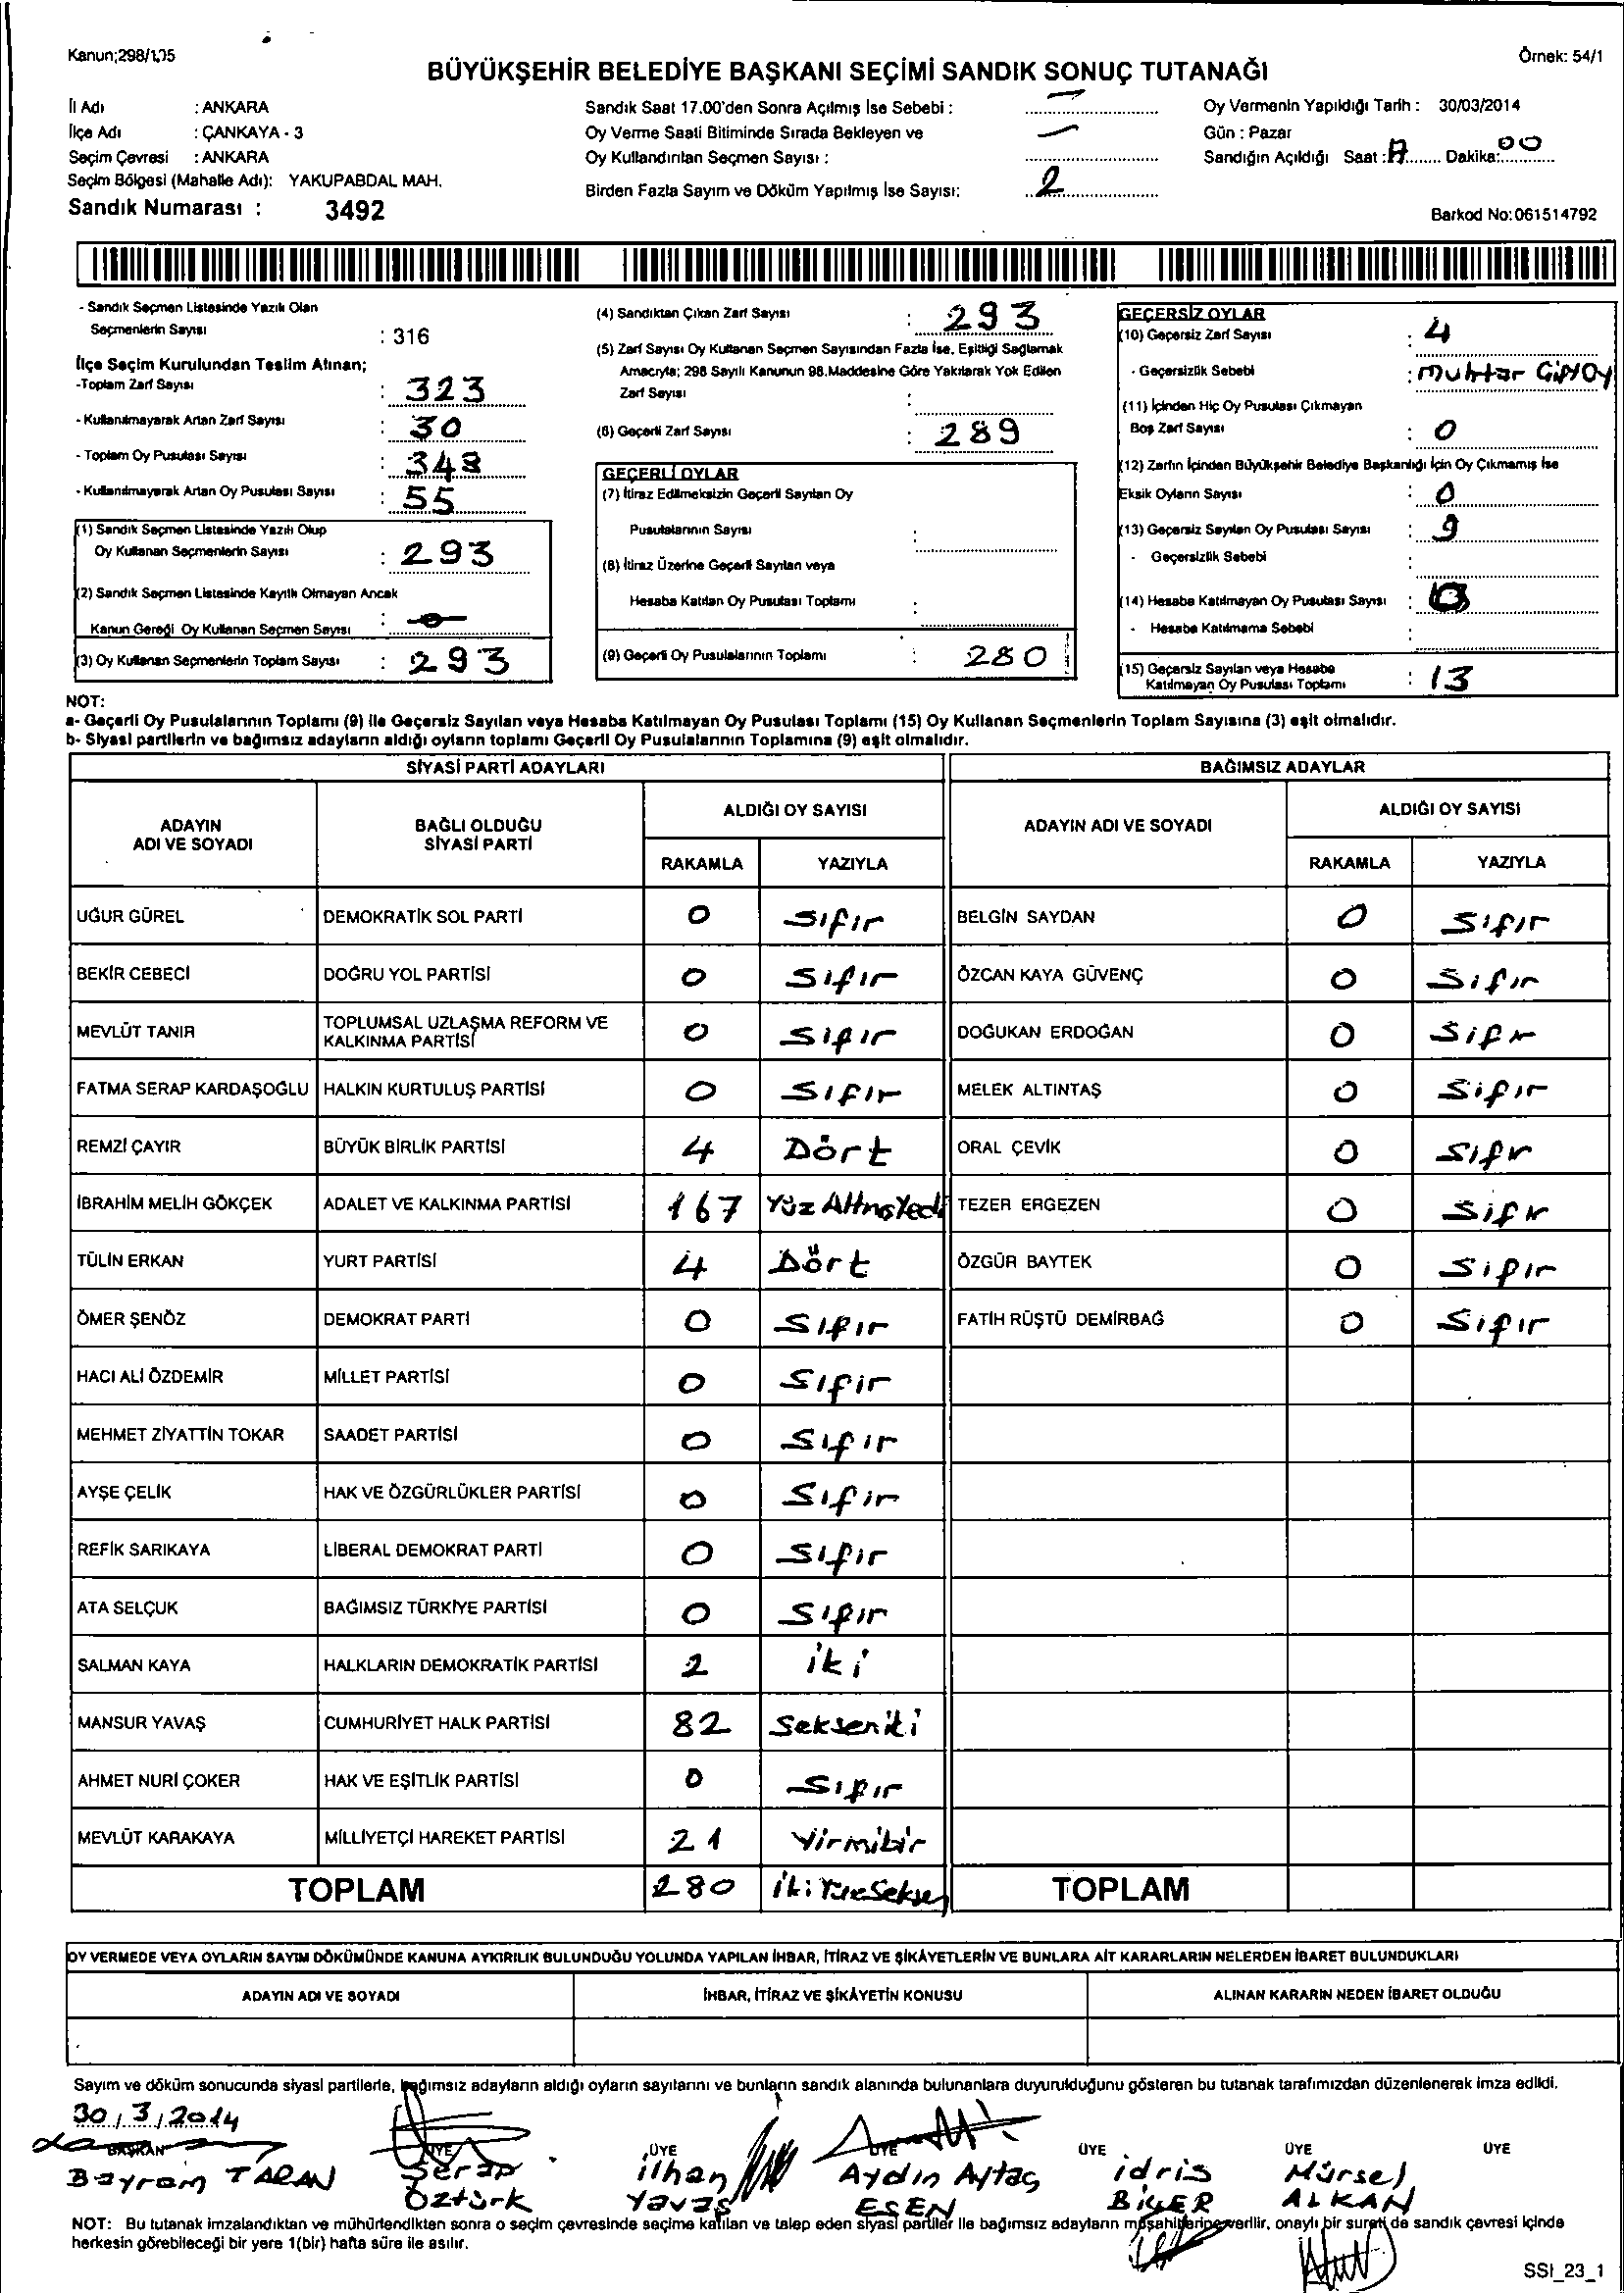 Kanun;298/105
Örnek: 54/1
BÜYÜKŞEHİR BELEDİYE BAŞKANI SEÇİMİ SANDIK SONUÇ TUTANAĞI
İl Adı : ANKARA
İlçe Adı : ÇANKAYA - 3
Seçim Çevresi : ANKARA
Seçim Bölgesi (Mahalle Adı): YAKUPABDAL MAH.
Sandık Numarası : 3492
Sandık Saat 17.00'den Sonra Açılmış İse Sebebi : —
Oy Verme Saati Bitiminde Sırada Bekleyen ve —
Oy Kullandırılan Seçmen Sayısı :
Birden Fazla Sayım ve Döküm Yapılmış İse Sayısı: 2
Oy Vermenin Yapıldığı Tarih : 30/03/2014
Gün : Pazar
Sandığın Açıldığı Saat : Dakika: 00
Barkod No:061514792
- Sandık Seçmen Listesinde Yazılı Olan
Seçmenlerin Sayısı : 316
İlçe Seçim Kurulundan Teslim Alınan;
-Toplam Zarf Sayısı : 323
- Kullanılmayarak Artan Zarf Sayısı : 30
- Toplam Oy Pusulası Sayısı : 348
- Kullanılmayarak Artan Oy Pusulası Sayısı : 55
(1) Sandık Seçmen Listesinde Yazılı Olup
Oy Kullanan Seçmenlerin Sayısı : 293
(2) Sandık Seçmen Listesinde Kayıtlı Olmayan Ancak
Kanun Gereği Oy Kullanan Seçmen Sayısı : 0
(3) Oy Kullanan Seçmenlerin Toplam Sayısı : 293
(4) Sandıktan Çıkan Zarf Sayısı : 293
(5) Zarf Sayısı Oy Kullanan Seçmen Sayısından Fazla İse, Eşitliği Sağlamak
Amacıyla; 298 Sayılı Kanunun 98.Maddesine Göre Yakılarak Yok Edilen
Zarf Sayısı :
(6) Geçerli Zarf Sayısı : 289
GEÇERLİ OYLAR
(7) İtiraz Edilmeksizin Geçerli Sayılan Oy
Pusulalarının Sayısı :
(8) İtiraz Üzerine Geçerli Sayılan veya
Hesaba Katılan Oy Pusulası Toplamı :
(9) Geçerli Oy Pusulalarının Toplamı : 280
GEÇERSİZ OYLAR
(10) Geçersiz Zarf Sayısı : 4
- Geçersizlik Sebebi : Muhtar Çift Oy
(11) İçinden Hiç Oy Pusulası Çıkmayan
Boş Zarf Sayısı : 0
(12) Zarfın İçinden Büyükşehir Belediye Başkanlığı İçin Oy Çıkmamış İse
Eksik Oyların Sayısı : 0
(13) Geçersiz Sayılan Oy Pusulası Sayısı : 9
- Geçersizlik Sebebi :
(14) Hesaba Katılmayan Oy Pusulası Sayısı :
- Hesaba Katılmama Sebebi :
(15) Geçersiz Sayılan veya Hesaba
Katılmayan Oy Pusulası Toplamı : 13
NOT:
a- Geçerli Oy Pusulalarının Toplamı (9) ile Geçersiz Sayılan veya Hesaba Katılmayan Oy Pusulası Toplamı (15) Oy Kullanan Seçmenlerin Toplam Sayısına (3) eşit olmalıdır.
b- Siyasi partilerin ve bağımsız adayların aldığı oyların toplamı Geçerli Oy Pusulalarının Toplamına (9) eşit olmalıdır.
SİYASİ PARTİ ADAYLARI BAĞIMSIZ ADAYLAR
ADAYIN ADI VE SOYADI BAĞLI OLDUĞU SİYASİ PARTİ ALDIĞI OY SAYISI ADAYIN ADI VE SOYADI ALDIĞI OY SAYISI
RAKAMLA YAZIYLA RAKAMLA YAZIYLA
UĞUR GÜREL DEMOKRATİK SOL PARTİ 0 Sıfır BELGİN SAYDAN 0 Sıfır
BEKİR CEBECİ DOĞRU YOL PARTİSİ 0 Sıfır ÖZCAN KAYA GÜVENÇ 0 Sıfır
MEVLÜT TANIR TOPLUMSAL UZLAŞMA REFORM VE KALKINMA PARTİSİ 0 Sıfır DOĞUKAN ERDOĞAN 0 Sıfır
FATMA SERAP KARDAŞOĞLU HALKIN KURTULUŞ PARTİSİ 0 Sıfır MELEK ALTINTAŞ 0 Sıfır
REMZİ ÇAYIR BÜYÜK BİRLİK PARTİSİ 4 Dört ORAL ÇEVİK 0 Sıfır
İBRAHİM MELİH GÖKÇEK ADALET VE KALKINMA PARTİSİ 167 Yüz Altmış Yedi TEZER ERGEZEN 0 Sıfır
TÜLİN ERKAN YURT PARTİSİ 4 Dört ÖZGÜR BAYTEK 0 Sıfır
ÖMER ŞENÖZ DEMOKRAT PARTİ 0 Sıfır FATİH RÜŞTÜ DEMİRBAĞ 0 Sıfır
HACI ALİ ÖZDEMİR MİLLET PARTİSİ 0 Sıfır
MEHMET ZİYATTİN TOKAR SAADET PARTİSİ 0 Sıfır
AYŞE ÇELİK HAK VE ÖZGÜRLÜKLER PARTİSİ 0 Sıfır
REFİK SARIKAYA LİBERAL DEMOKRAT PARTİ 0 Sıfır
ATA SELÇUK BAĞIMSIZ TÜRKİYE PARTİSİ 0 Sıfır
SALMAN KAYA HALKLARIN DEMOKRATİK PARTİSİ 2 iki
MANSUR YAVAŞ CUMHURİYET HALK PARTİSİ 82 Seksen iki
AHMET NURİ ÇOKER HAK VE EŞİTLİK PARTİSİ 0 Sıfır
MEVLÜT KARAKAYA MİLLİYETÇİ HAREKET PARTİSİ 21 Yirmibir
TOPLAM 280 iki Yüz Seksen TOPLAM
OY VERMEDE VEYA OYLARIN SAYIM DÖKÜMÜNDE KANUNA AYKIRILIK BULUNDUĞU YOLUNDA YAPILAN İHBAR, İTİRAZ VE ŞİKÂYETLERİN VE BUNLARA AİT KARARLARIN NELERDEN İBARET BULUNDUKLARI
ADAYIN ADI VE SOYADI İHBAR, İTİRAZ VE ŞİKÂYETİN KONUSU ALINAN KARARIN NEDEN İBARET OLDUĞU
Sayım ve döküm sonucunda siyasi partilerle, bağımsız adayların aldığı oyların sayılarını ve bunların sandık alanında bulunanlara duyurulduğunu gösteren bu tutanak tarafımızdan düzenlenerek imza edildi.
30/3/2014
BAŞKAN ÜYE ÜYE ÜYE ÜYE ÜYE ÜYE
Bayram TARAN Serap Öztürk ilhan Yavaş Aydın Aytaç ESEN idris BİÇER Mürsel ALKAN
NOT: Bu tutanak imzalandıktan ve mühürlendikten sonra o seçim çevresinde seçime katılan ve talep eden siyasi partiler ile bağımsız adayların müşahitlerine verilir, onaylı bir sureti de sandık çevresi içinde
herkesin görebileceği bir yere 1(bir) hafta süre ile asılır.
SSI_23_1